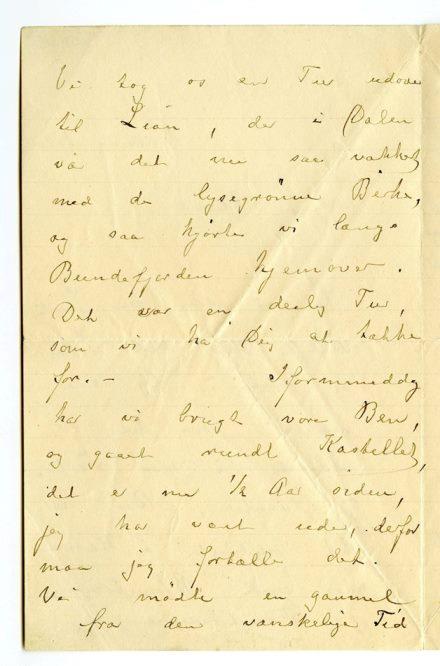 Vi tog os en Tur udover
til Lian, der i Dalen
var det nu saa vakkert
med de lysegrønne Birke,
og saa kjørte vi langs
Bundefjorden hjemover.
Det var en deilig Tur,
som vi ha Dig at takke
for. – Iformiddag
har vi brugt vore Ben,
og gaaet rundt Kastellet,
det er nu ½ Aar siden,
jeg har vært ude, derfor
maa jeg fortælle det.
Vi mødte en gammel
fra den vanskelige Tid